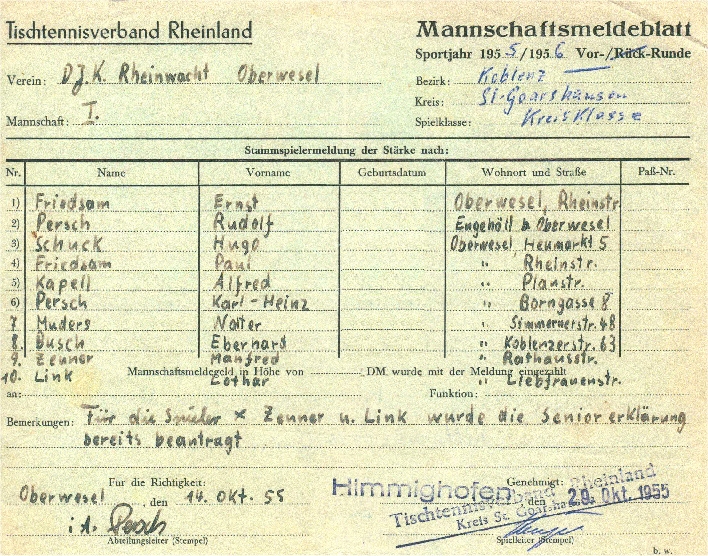 Tischtennisverband Rheinland
Mannschaftsmeldeblatt
Sportjahr 1955/1956 Vor-/Rück-Runde
Verein: DJ.K. Rheinwacht Oberwesel
Bezirk: Koblenz
Kreis: St-Goarshausen
Mannschaft: I.
Spielklasse: Kreisklasse
Stammspielermeldung der Stärke nach:
Nr. Name Vorname Geburtsdatum Wohnort und Straße Paß-Nr.
1) Friedsam Ernst Oberwesel, Rheinstr.
2) Persch Rudolf Engehöll b Oberwesel
3) Schuck Hugo Oberwesel Heumarkt 5
4) Friedsam Paul " Rheinstr.
5) Kapell Alfred " Planstr.
6) Persch Karl-Heinz " Borngasse 8
7 Muders " Simmernerstr. 48
8. Busch Eberhard " Koblenzerstr. 63
9. Zenner Manfred " Rathausstr.
Mannschaftsmeldegeld in Höhe von DM wurde mit der Meldung eingezahlt
10. Link Lothar " Liebfrauenstr.
an: Funktion:
Bemerkungen: Für die Spieler x Zenner u. Link wurde die Seniorerklärung
bereits beantragt
Für die Richtigkeit: Genehmigt:
Oberwesel, den 14. Okt. 55
Himmighofen, den 29. Okt. 1955
Tischtennisverband Rheinland
Kreis St. Goarsha
i.A. Persch
Abteilungsleiter (Stempel) Spielleiter (Stempel)
b. w.